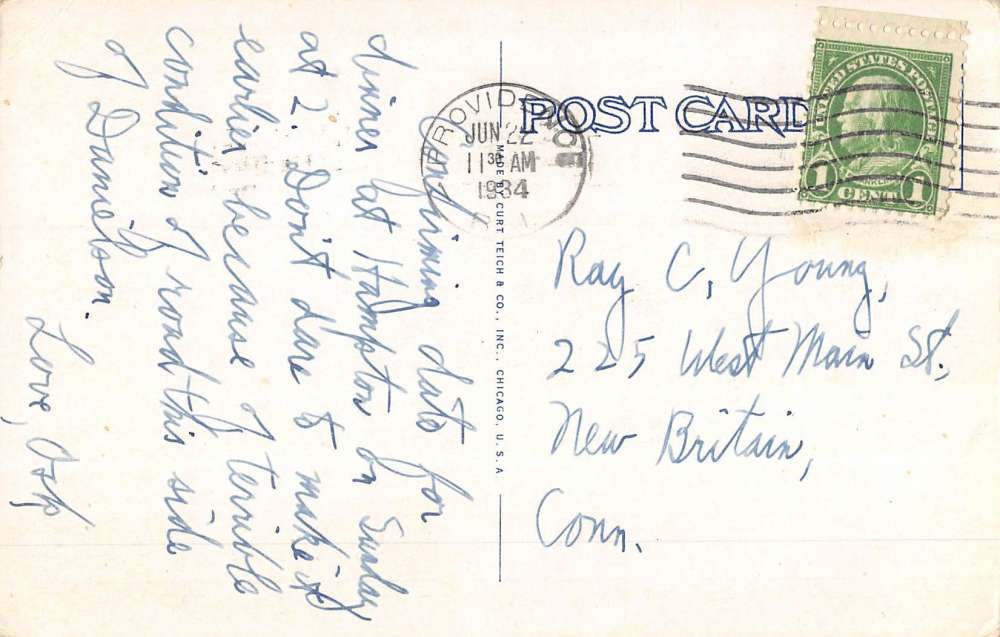 Confirming date for
dinner at Hampton on Sunday
at 2. Don't dare to make it
earlier because of terrible
condition of road this side
of Danielson.
Love,
PROVIDENCE
JUN 22
11 30 AM
1934
POST CARD
MADE BY CURT TEICH & CO., INC., CHICAGO, U.S.A
UNITED STATES POSTAGE
FRANKLIN
1 CENT 1
Ray C. Young,
225 West Main St.,
New Britain,
Conn.